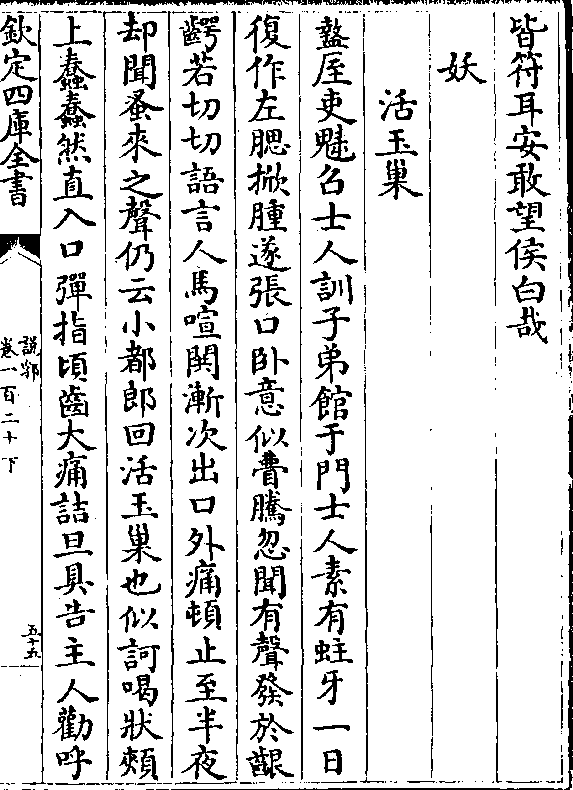 皆符耳安敢望侯白哉
妖
活玉巢
盩厔吏魅召士人訓子弟館于門士人素有蛀牙一日
復作左腮掀腫遂張口卧意似瞢騰忽聞有聲發於齦
齶若切切語言人馬喧閧漸次出口外痛頓止至半夜
却聞蚤來之聲仍云小都郎回活玉巢也似訶喝狀頰
上蠢蠢然直入口彈指頃齒大痛詰旦具告主人勸呼
欽定四庫全書
說郛
卷一百二十下
五十五